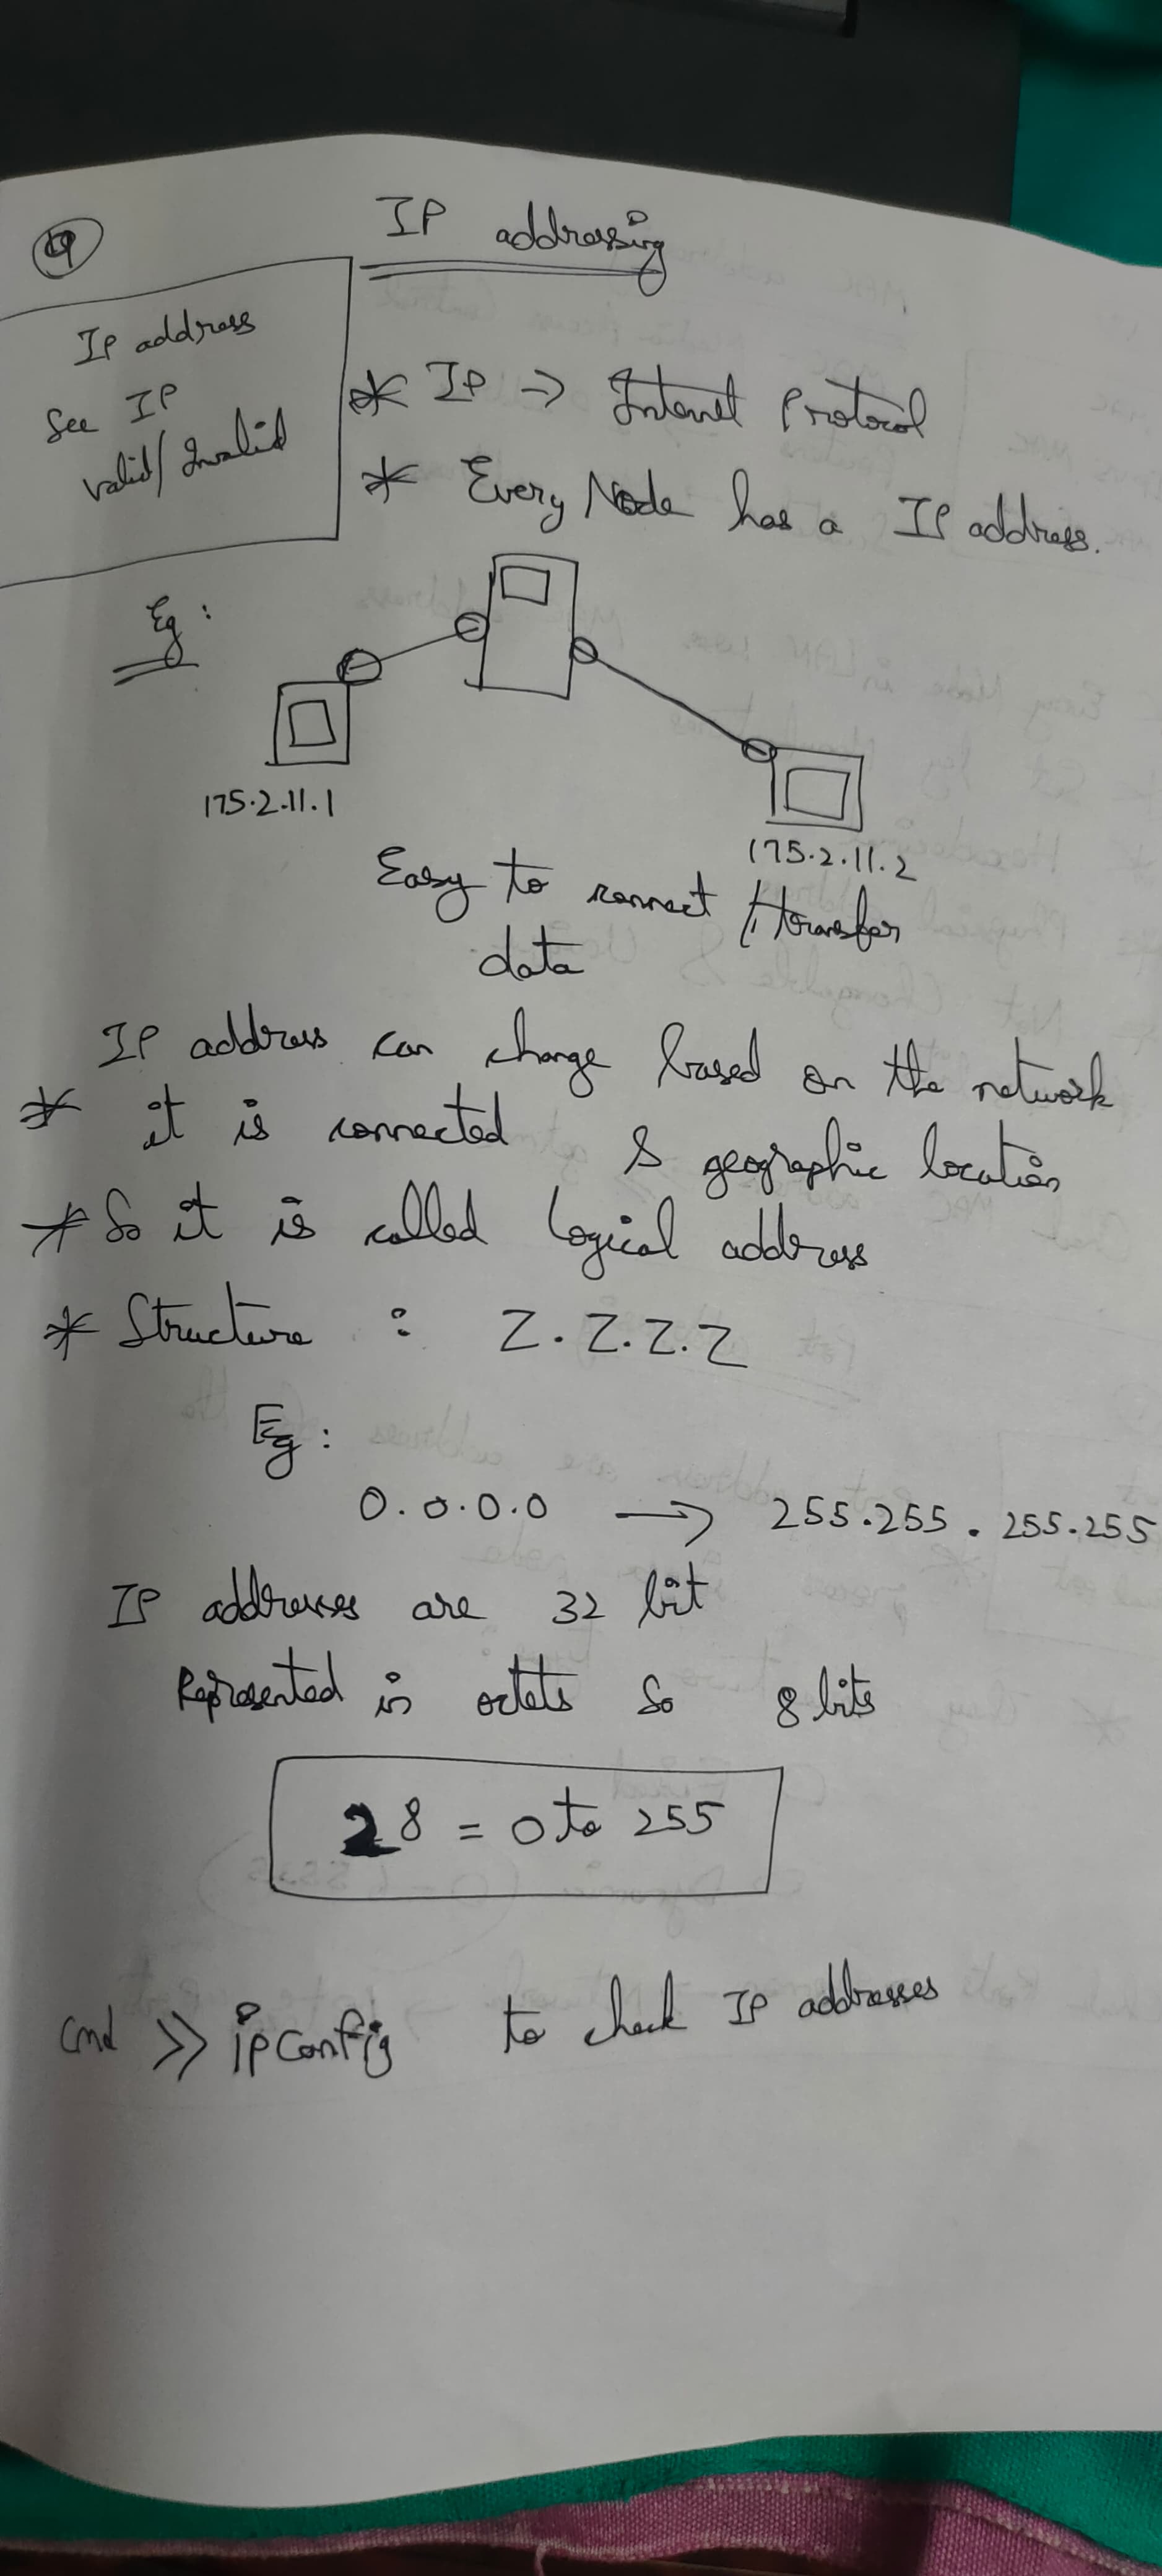 ④
IP addressing
IP address
See IP
valid/Invalid
* IP → Internet Protocol
* Every Node has a IP address.
Eg:
175.2.11.1
175.2.11.2
Easy to connect/transfer
data
IP address can change based on the network
* it is connected & geographic location
* So it is called Logical address
* Structure : Z.Z.Z.Z
Eg:
0.0.0.0 → 255.255.255.255
IP addresses are 32 bit
Represented in octets So 8 bits
2⁸ = 0 to 255
Cmd >> ipconfig to check IP addresses